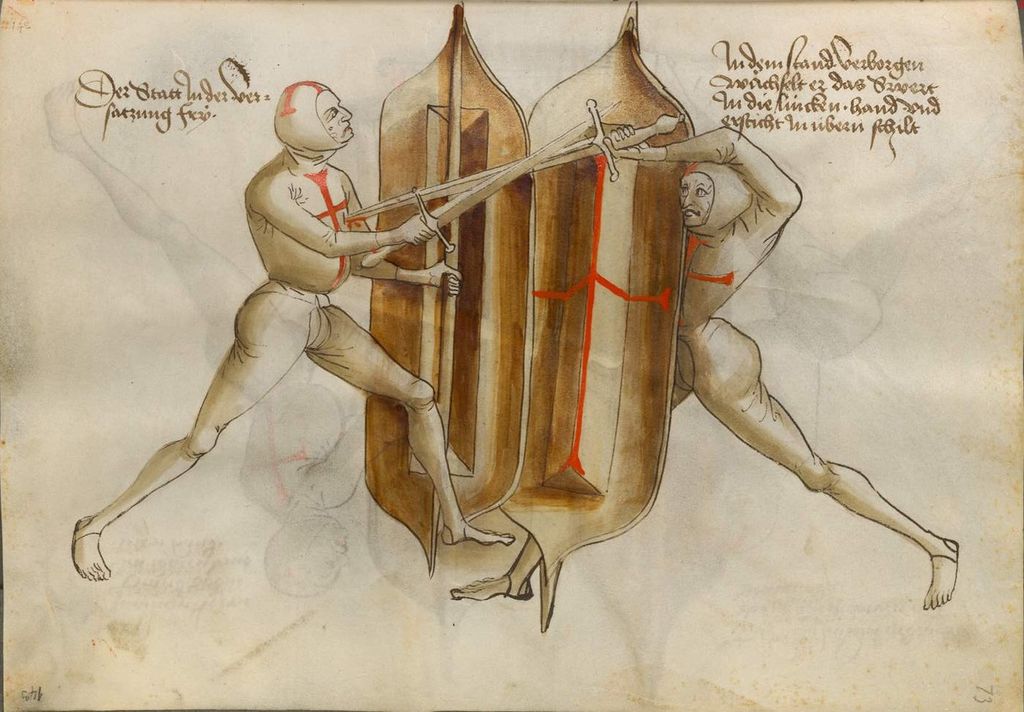 Der Statt In der ver-
satzung fry.
In dem stand verborgen
wächselt er das Swert
In die lincken hand vnd
ersticht In übern schilt
73